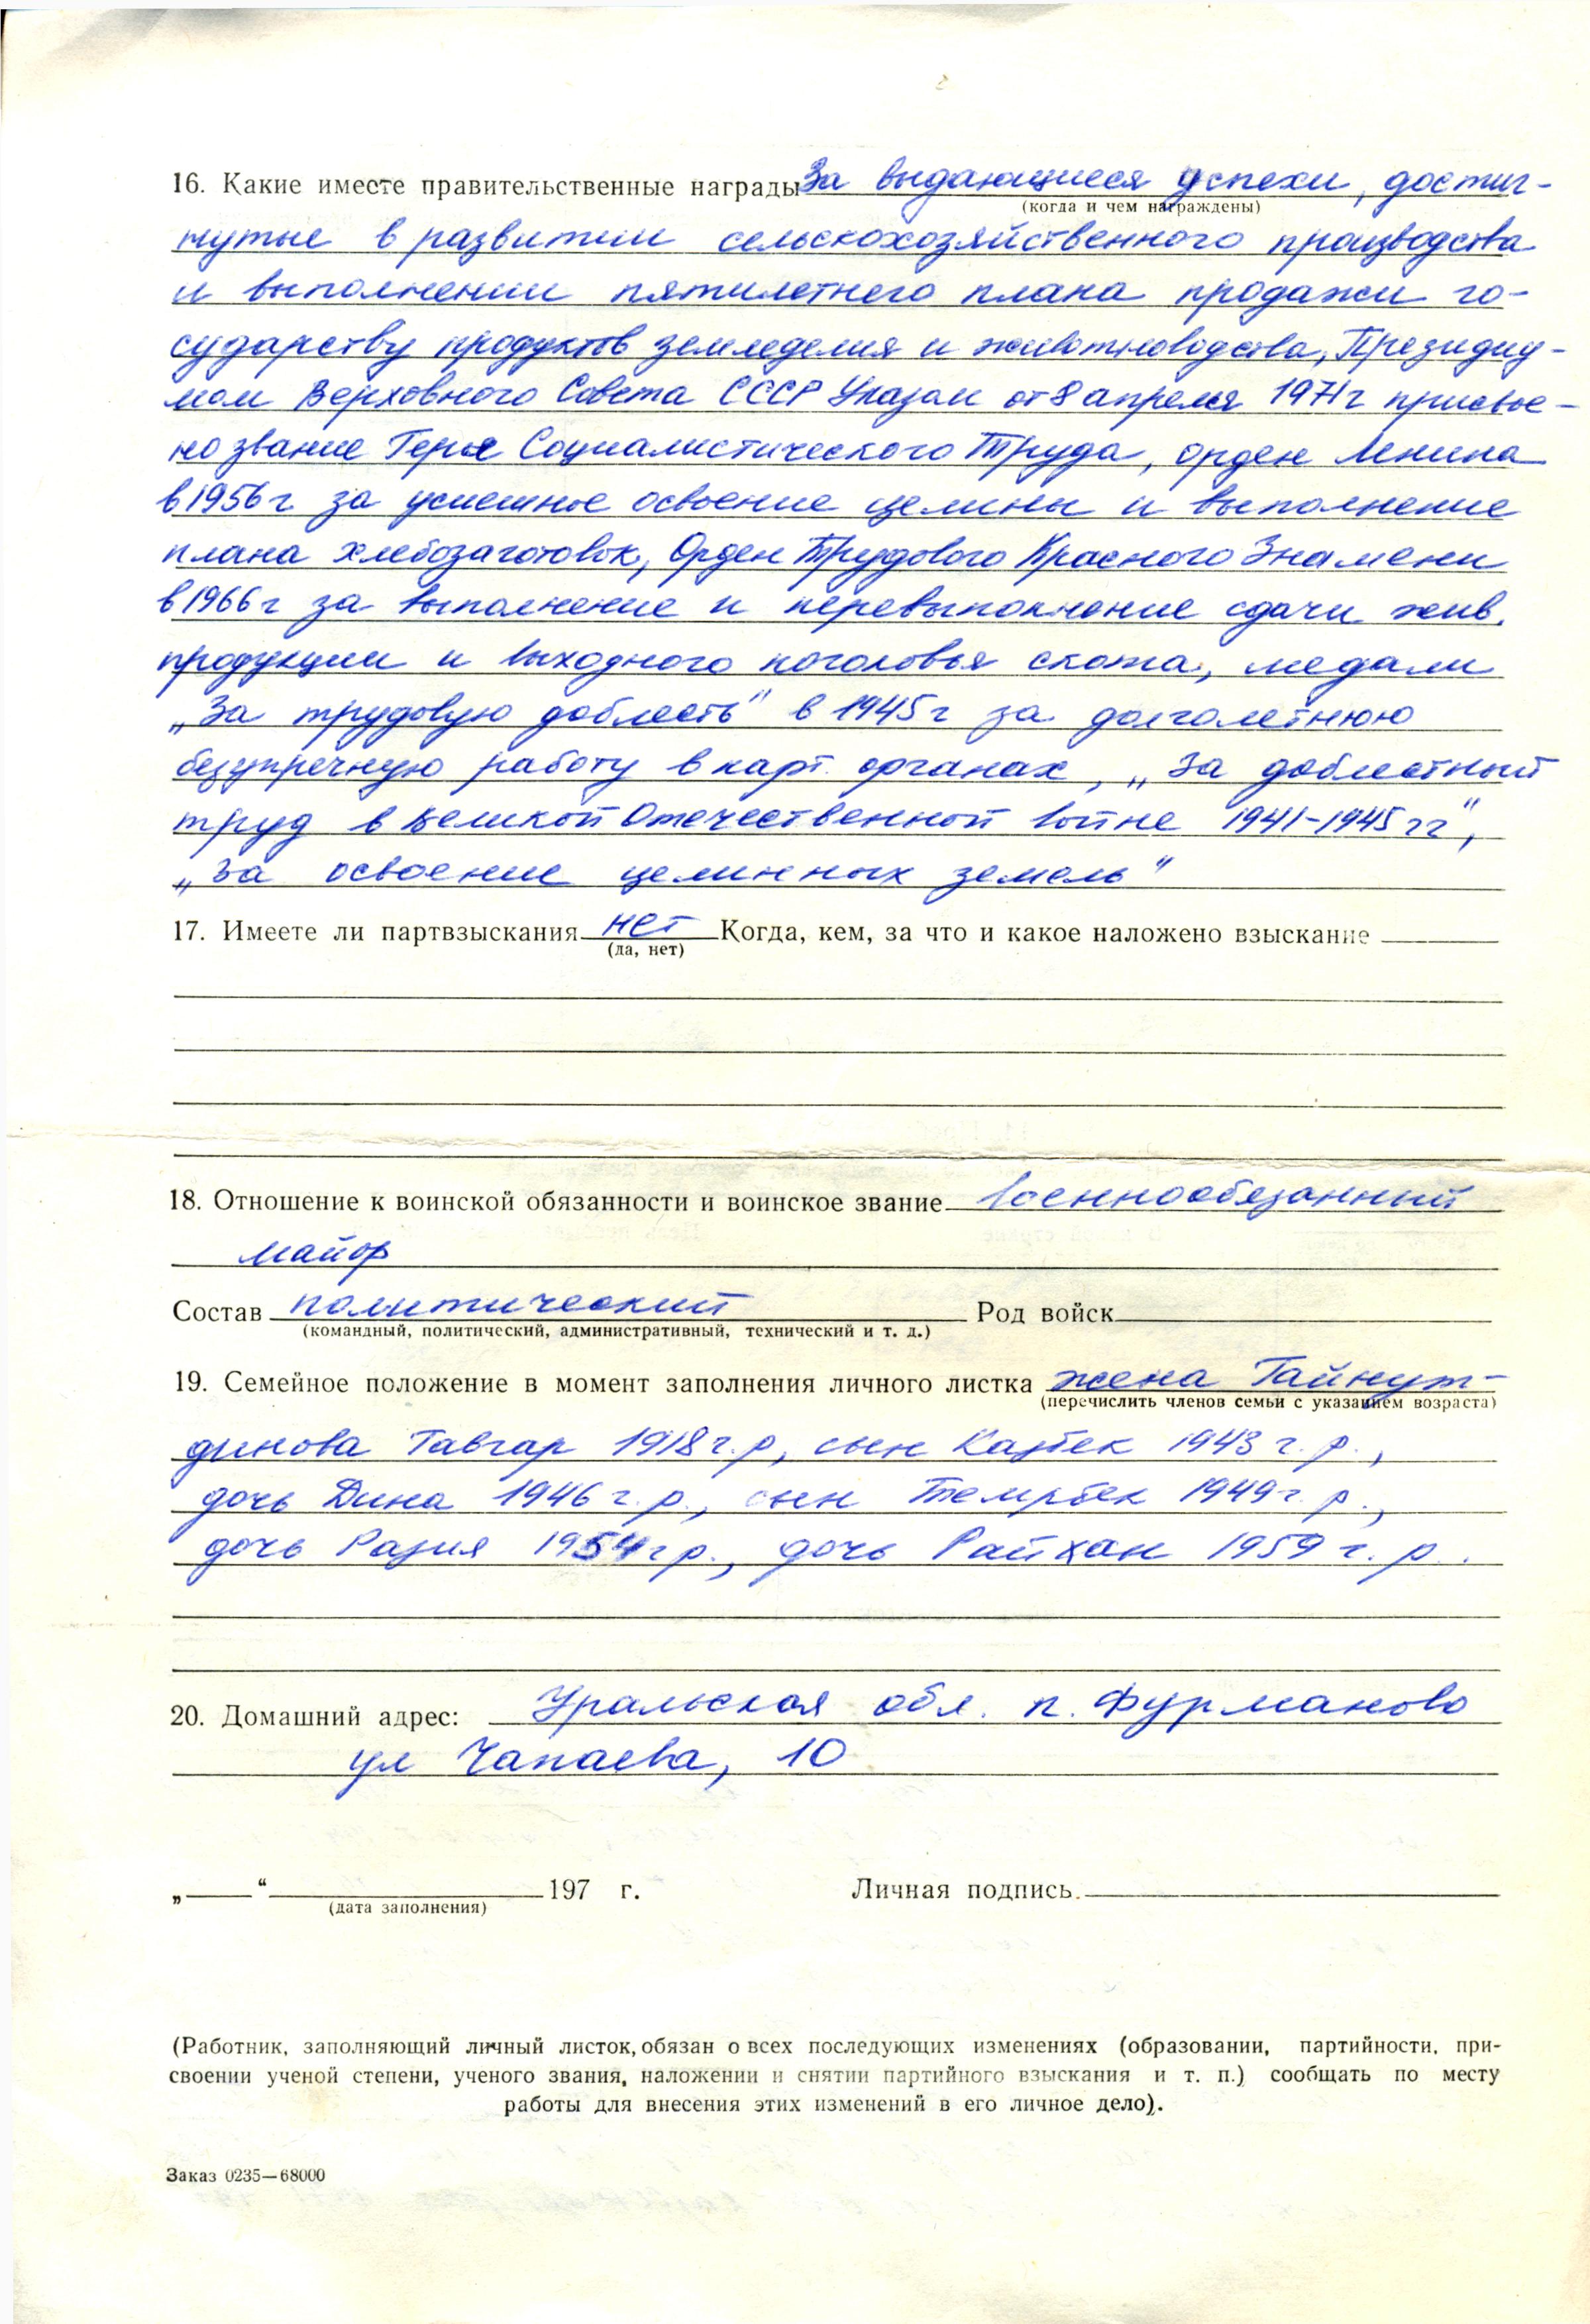 16. Какие имеете правительственные награды За выдающиеся успехи, достиг-
(когда и чем награждены)
нутые в развитии сельскохозяйственного производства
и выполнении пятилетнего плана продажи го-
сударству продуктов земледелия и животноводства, Президиу-
мом Верховного Совета СССР Указом от 8 апреля 1971 г присвое-
но звание Героя Социалистического Труда, орден Ленина
в 1956 г за успешное освоение целины и выполнение
плана хлебозаготовок, Орден Трудового Красного Знамени
в 1966 г за выполнение и перевыполнение сдачи жив.
продукции и выходного поголовья скота, медали
„За трудовую доблесть" в 1945 г за долголетнюю
безупречную работу в парт. органах, „За доблестный
труд в Великой Отечественной войне 1941-1945 гг",
„За освоение целинных земель"
17. Имеете ли партвзыскания нет Когда, кем, за что и какое наложено взыскание
(да, нет)
18. Отношение к воинской обязанности и воинское звание военнообязанный
майор
Состав политический Род войск
(командный, политический, административный, технический и т. д.)
19. Семейное положение в момент заполнения личного листка жена Гайнут-
(перечислить членов семьи с указанием возраста)
динова Тавгар 1918 г.р, сын Казбек 1943 г. р.,
дочь Дина 1946 г. р., сын Темрбек 1949 г. р.,
дочь Разия 1954 г р., дочь Райхан 1959 г. р.
20. Домашний адрес: Уральская обл. п. Фурманово
ул Чапаева, 10
„ “ 197 г. Личная подпись.
(дата заполнения)
(Работник, заполняющий личный листок, обязан о всех последующих изменениях (образовании, партийности, при-
своении ученой степени, ученого звания, наложении и снятии партийного взыскания и т. п.) сообщать по месту
работы для внесения этих изменений в его личное дело).
Заказ 0235—68000